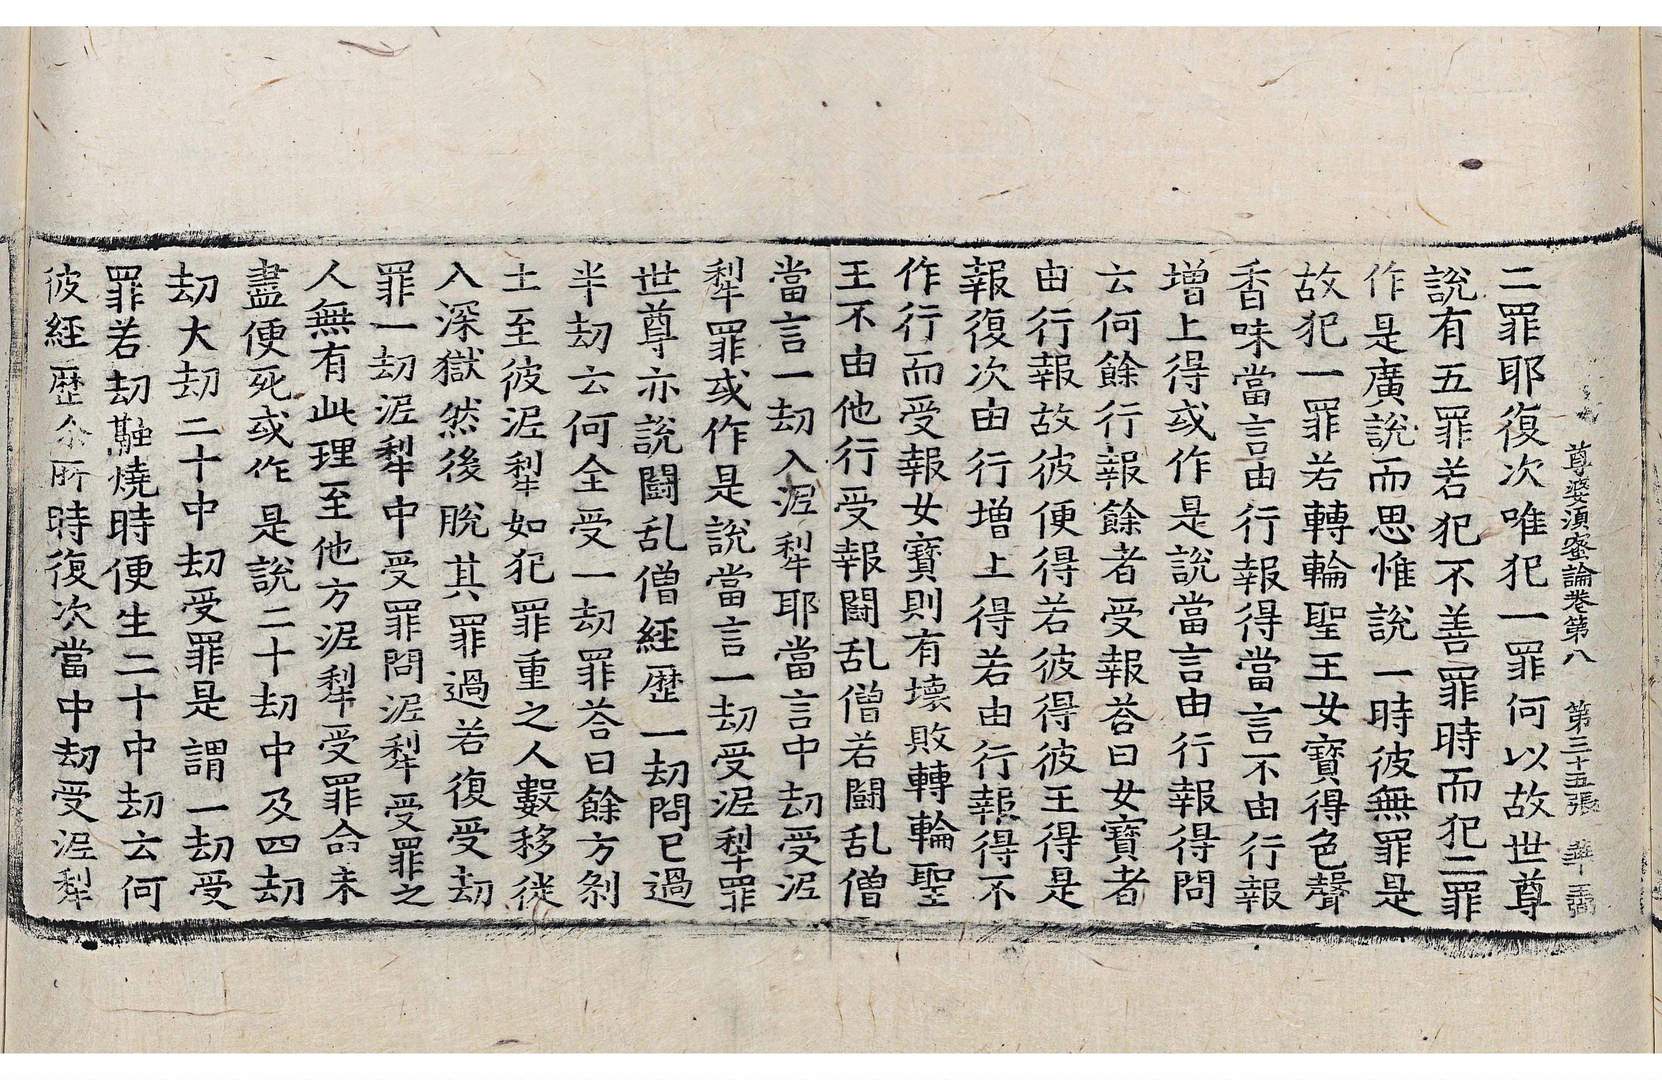 尊婆須蜜論卷第八 第三十五張
二罪耶復次唯犯一罪何以故世尊
説有五罪若犯不善罪時而犯二罪
作是廣説而思惟説一時彼無罪是
故犯一罪若轉輪聖王女寳得色聲
香味當言由行報得當言不由行報
增上得或作是説當言由行報得問
云何餘行報餘者受報荅曰女寳者
由行報故彼便得若彼得彼王得是
報復次由行增上得若由行報得不
作行而受報女寳則有壞敗轉輪聖
王不由他行受報鬪乱僧若鬪乱僧
當言一劫入泥犁耶當言中劫受泥
犁罪或作是説當言一劫受泥犁罪
世尊亦説鬪乱僧經歷一劫問已過
半劫云何全受一劫罪荅曰餘方刹
土至彼泥犁如犯罪重之人數移徙
入深獄然後脫其罪過若復受劫
罪一劫泥犁中受罪問泥犁受罪之
人無有此理至他方泥犁受罪命未
盡便死或作是説二十劫中及四劫
劫大劫二十中劫受罪是謂一劫受
罪若劫融燒時便生二十中劫云何
彼經歷尒所時復次當中劫受泥犁